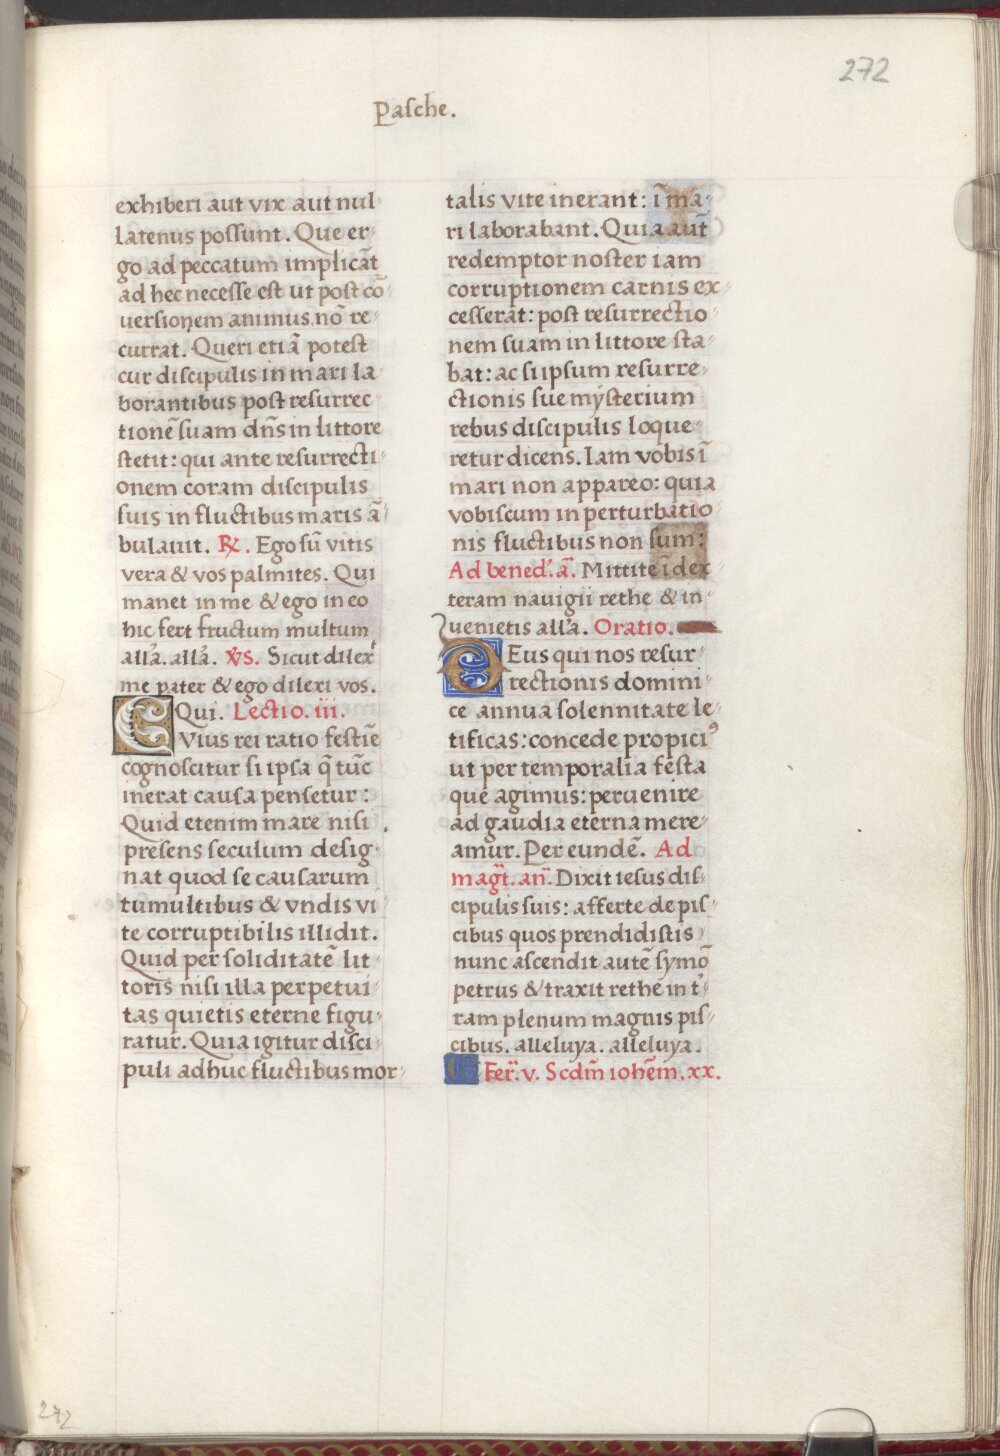 272
Pasche.
exhiberi aut vix aut nul
latenus possunt. Que er
go ad peccatum implicāt
ad hec necesse est ut post cō
uersionem animus nō re
currat. Queri etiā potest
cur discipulis in mari la
borantibus post resurrec
tionē suam dn̄s in littore
stetit: qui ante resurrecti
onem coram discipulis
suis in fluctibus maris ā
bulauit. ℟. Ego sū vitis
vera & vos palmites. Qui
manet in me & ego in eo
hic fert fructum multum
all'a. all'a. V̓S. Sicut dilex̓
me pater & ego dilexi vos.
Qui. Lectio. iii.
CVius rei ratio festīe
cognoscitur si ipsa q̄ tūc
inerat causa pensetur:
Quid etenim mare nisi
presens seculum desig
nat quod se causarum
tumultibus & vndis vi
te corruptibilis illidit.
Quid per soliditatē lit
toris nisi illa perpetui
tas quietis eterne figu
ratur. Quia igitur disci
puli adhuc fluctibus mor
talis vite inerant: ī ma
ri laborabant. Quia aut̄
redemptor noster iam
corruptionem carnis ex
cesserat: post resurrectio
nem suam in littore sta
bat: ac si ipsum resurre
ctionis sue mysterium
rebus discipulis loque
retur dicens. Iam vobis ī
mari non appareo: quia
vobiscum in perturbatio
nis fluctibus non sum:
Ad bened'. ā. Mittite ī dex
teram nauigii rethe & in
uenietis all'a. Oratio.
DEus qui nos resur
rectionis domini
ce annua solennitate le
tificas: concede propiciꝰ
ut per temporalia festa
que agimus: peruenire
ad gaudia eterna mere
amur. Per eundē. Ad
magt̄. an̄. Dixit iesus dis
cipulis suis: afferte de pis
cibus quos prendidistis
nunc ascendit autē symō
petrus & traxit rethe in t̓
ram plenum magnis pis
cibus. alleluya. alleluya.
Fer̄. v. Scdm̄ iohēm. xx.
272